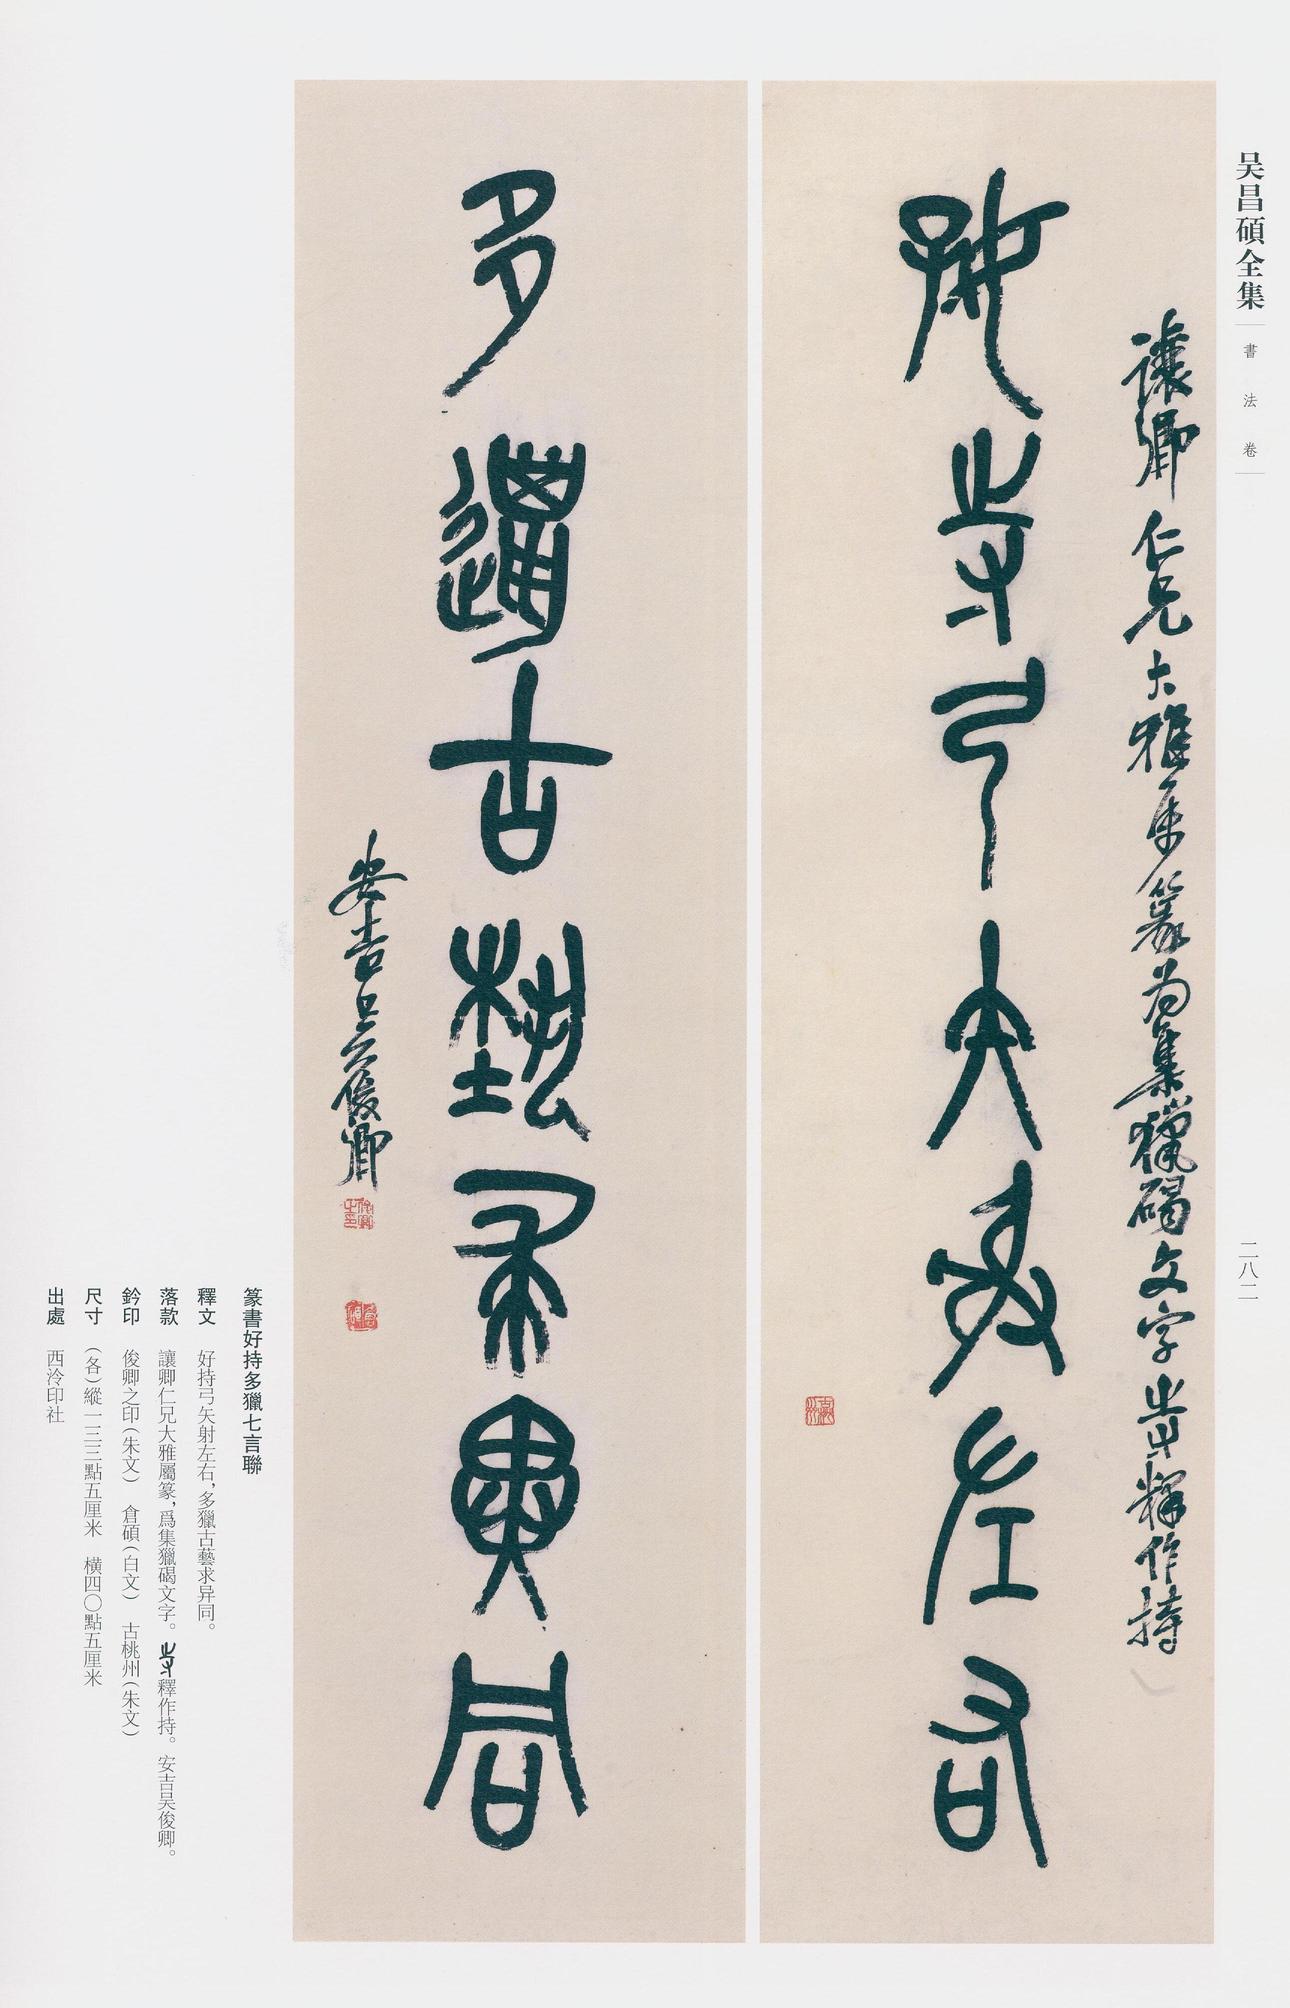 吴昌碩全集
書法卷
二八二
讓卿仁兄大雅属篆为集獵碣文字𢭏释作持
好𢭏弓矢射左右
多邋古埶求異同
安吉吴俊卿
俊卿之印
倉碩
古桃州
篆書好持多獵七言聯
釋文 好持弓矢射左右，多獵古藝求异同。
落款 讓卿仁兄大雅屬篆，爲集獵碣文字。𢭏釋作持。安吉吴俊卿。
鈐印 俊卿之印（朱文） 倉碩（白文） 古桃州（朱文）
尺寸 （各）縱一三三點五厘米 橫四〇點五厘米
出處 西泠印社